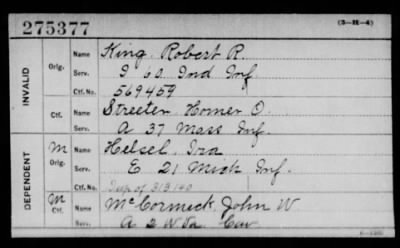 275377
(3-H-4)
INVALID
Orig.
Name King, Robert R.
Serv. I 60 Ind Inf
Ctf. No. 569459
Ctf.
Name Streeter, Homer O.
Serv. A 37 Mass Inf.
DEPENDENT
M
Orig.
Name Helsel, Ira
Serv. E 21 Mich Inf.
Ctf. No. of 313140
M
Ctf.
Name McCormick, John W.
Serv. A 2 W.Va. Cav